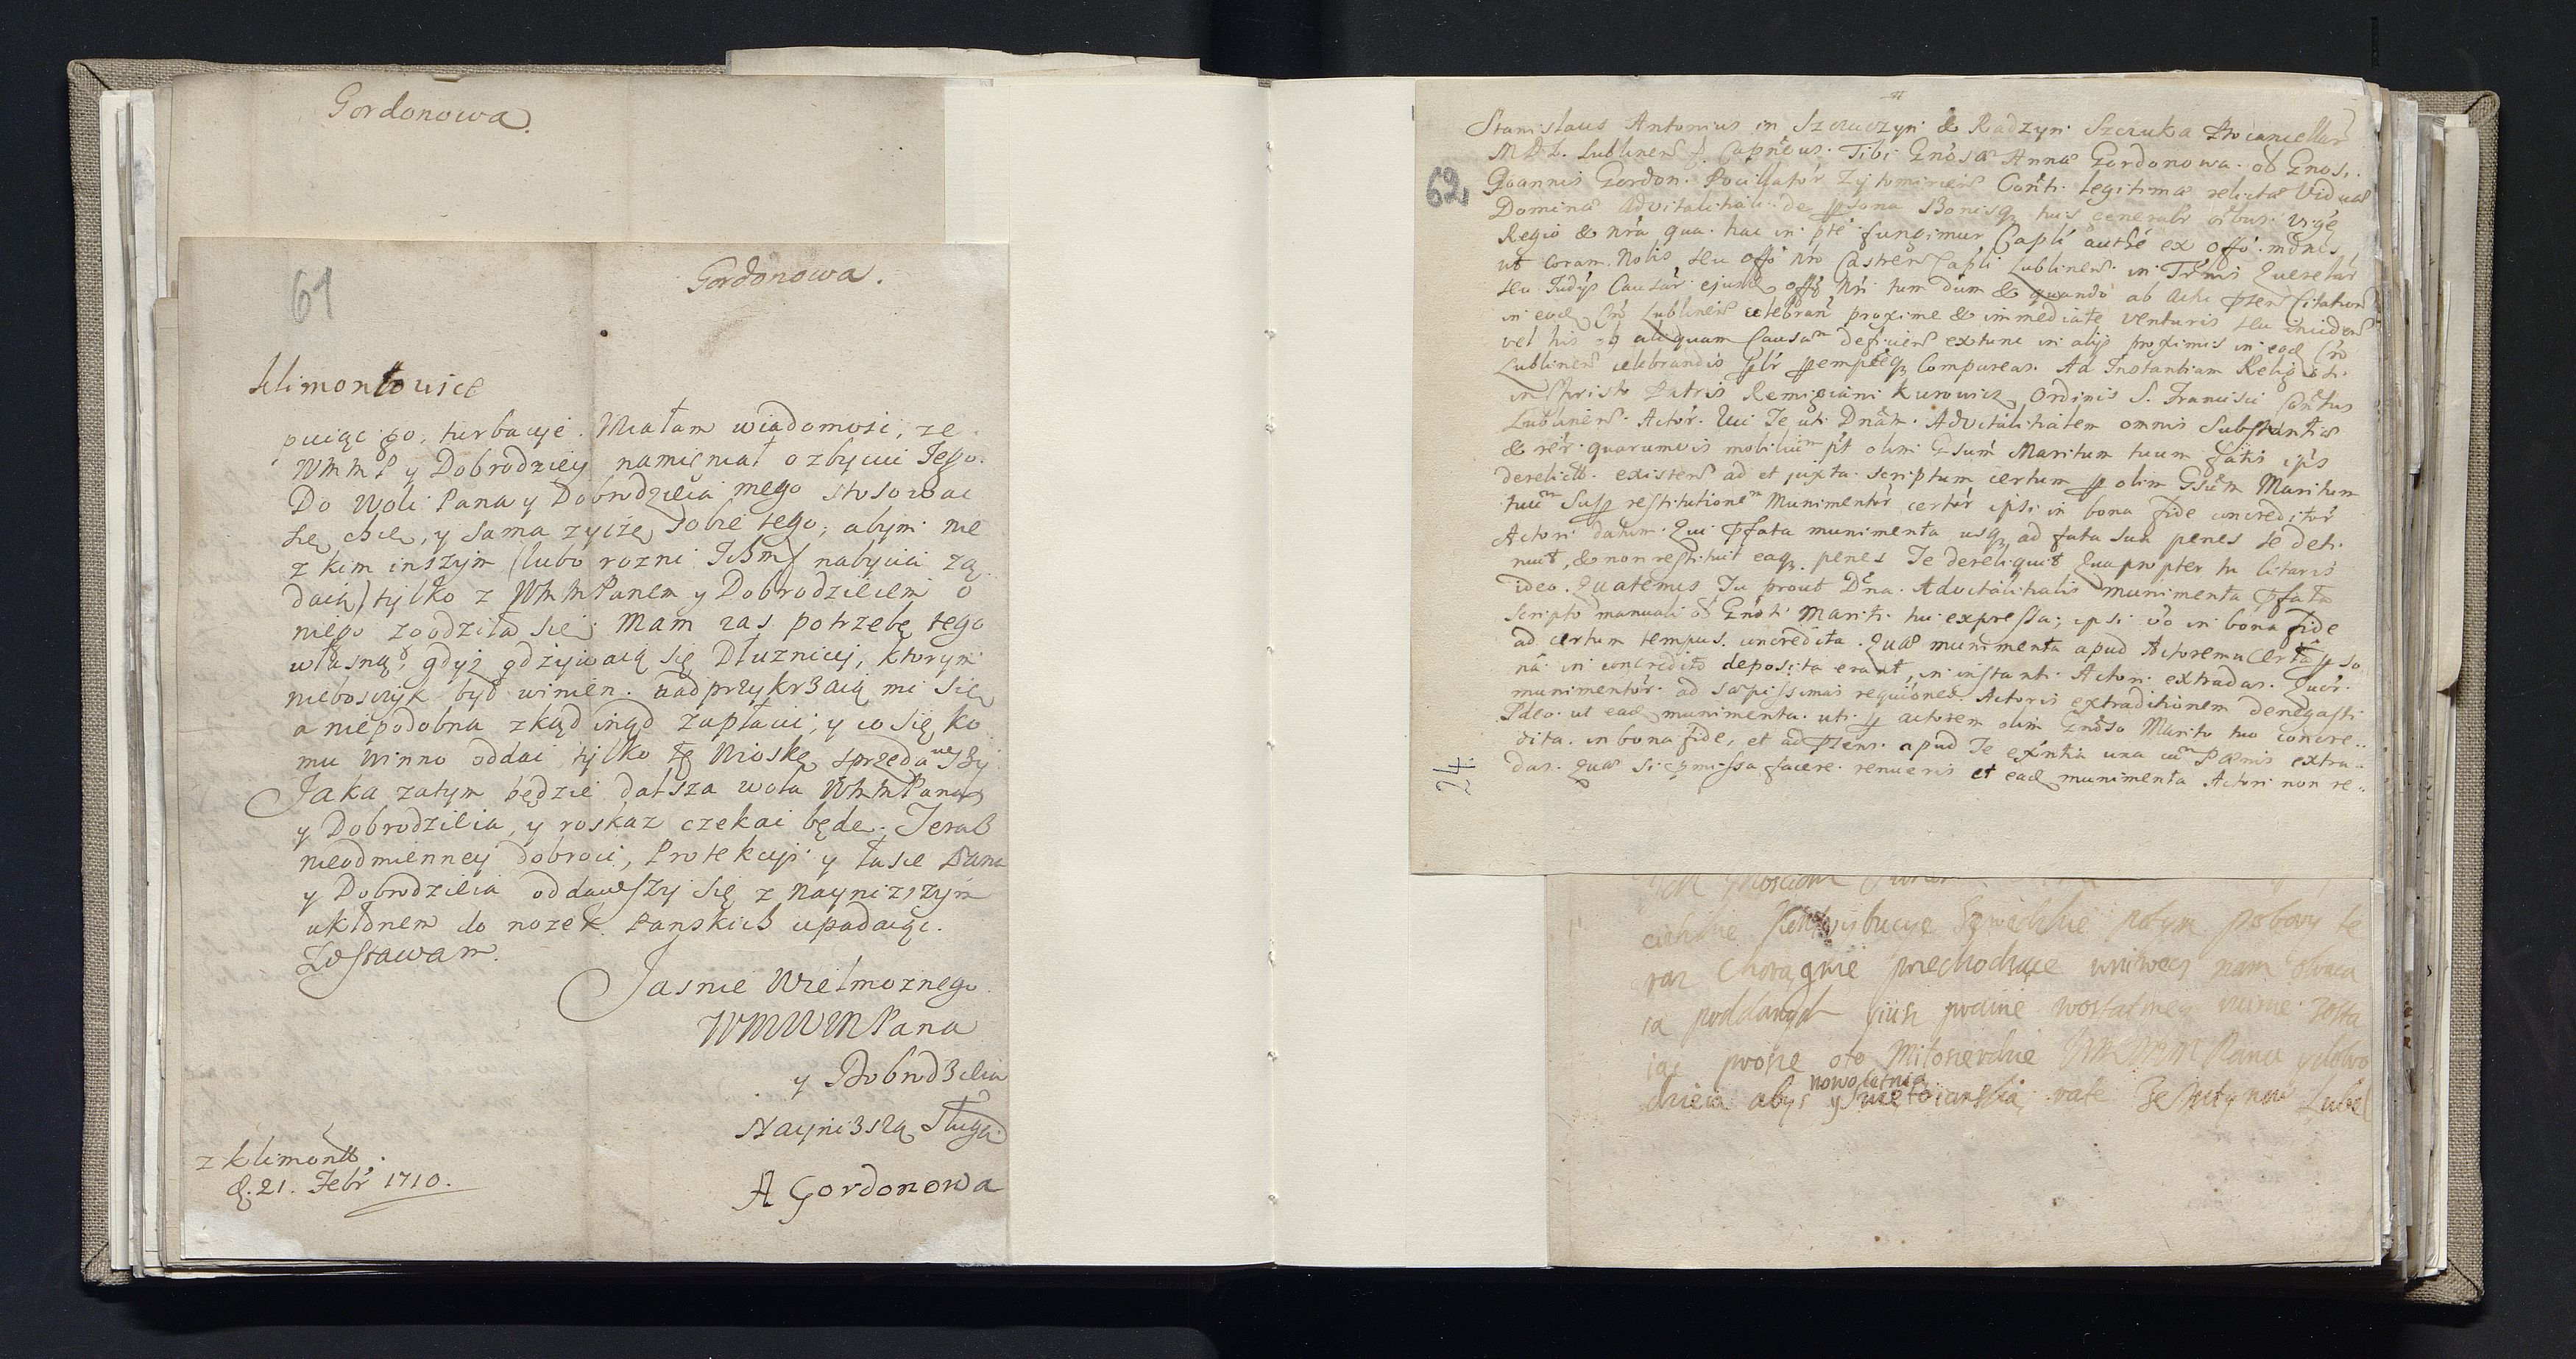 Gordonowa.
61
Gordonowa.
Klimontowice
puiąc go, turbacyę. Miałam wiadomosc, ze
WMMP y Dobrodziey namieniał o zbyciu Jego.
Do woli Pana y Dobrodzieia mego stosowac
się chcę, y sama zyczę sobie tego, abym nie
z kim inszym (lubo rozni IchMś nabycia zą
daią) tylko z WMMPanem y Dobrodzieiem o
niego zgodziła się. Mam zas potrzebę tego
własną, gdyż odzywaią się Dłuznicy, ktorym
nieboszczyk był winien. nadprzykrzaią mi się
a niepodobna zkąd inąd zapłacic, y co się ko
mu winno oddac tylko tę Wioskę sprzedawszy
Jaka zatym będzie dalsza wola WMMPana
y Dobrodzieia, y roskaz czekac będę. Teraz
nieodmienney dobroci, Protekcyi y łasce Pana
y Dobrodzieia oddawszy się z naynizszym
ukłonem do nozek Panskich upadaiąc.
Zostawam.
Jasnie Wielmoznego
WMWMPana
y Dobrodzieia
Naynizszą Sługą
A Gordonowa
z Klimont
d. 21. Febr 1710.
62
Stanislaus Antonius in Szczuczyn & Radzyn Szczuka Procancellar
M D L. Lublinens Capneus. Tibi Gnosa Anna Gordonowa. ob Gnosi.
Joannis Gordon. Pocillator Zytomiriens Conti. legitima relicta Vidua
Domina advitalitali. de psona Bonisq tuis generalr oibus. vigē
Regio & nra qua. hac in pte fungimur Capli authē ex offō. mdnus
ut coram. Nobis seu offō nro Castren Capli Lublinens. in Trmis Querelar
seu Judys Causar ejusd offy nri tum dum & quando ab actu psen Citation
in ead Cro Lublinens celebran proxime & immediate venturis seu inciden
vel his ob aliquam Causam deficien extunc in alys proximis in ead Cro
Lublinens celebrandis plr pemptēq Compareas. Ad Instantiam Religiosi.
in Christo Patris Remigiani Kurowicz Ordinis S. Francisci Contus
Lublinens. Actor. Qui Te uti Dnam. Advitalitatem omnis Substantia
& rer quarumvis mobilium pt olim Gsum Maritum tuum fatis ipis
derelicto. existen ad et juxta scriptum certum p olim Gsum Maritum
tuum Sup restitutionem Munimentor certor ipsi in bona fide concreditor
Actori datum. Qui pfata munimenta usq ad fata sua penes se deti.
nuit, & non restituit eaq. penes Te dereliquit Quapropter tu litaris
ideo. Quatenus Tu prout Dna. Advitalitalis munimenta pfata
scripto manuali ob Gnosi Mariti tui expressa, ipsi vo in bona fide
ad certum tempus. concredita. Qua munimenta apud Actorem
na in concredito deposita erant, in instanti. Actori extradas. Quor.
munimentor. ad sæpissimas requiones Actoris extraditionem denegasti
Ideo ut ead munimenta. uti p actorem olim Gnoso Marito tuo concre..
dita. in bona fide, et ad psens. apud Te exntia una cum Pœnis extra..
das. Qua si pmissa facere. renueris et ead munimenta Actori non re..
24.
Kontrybucye Szwedzkie potym pobory te
raz Chorągwie przechodzące wniwecz nam obraca
ią poddanych
prosze oto Miłosierdzie Pana
nowoletnia
abys y swietoianska rate